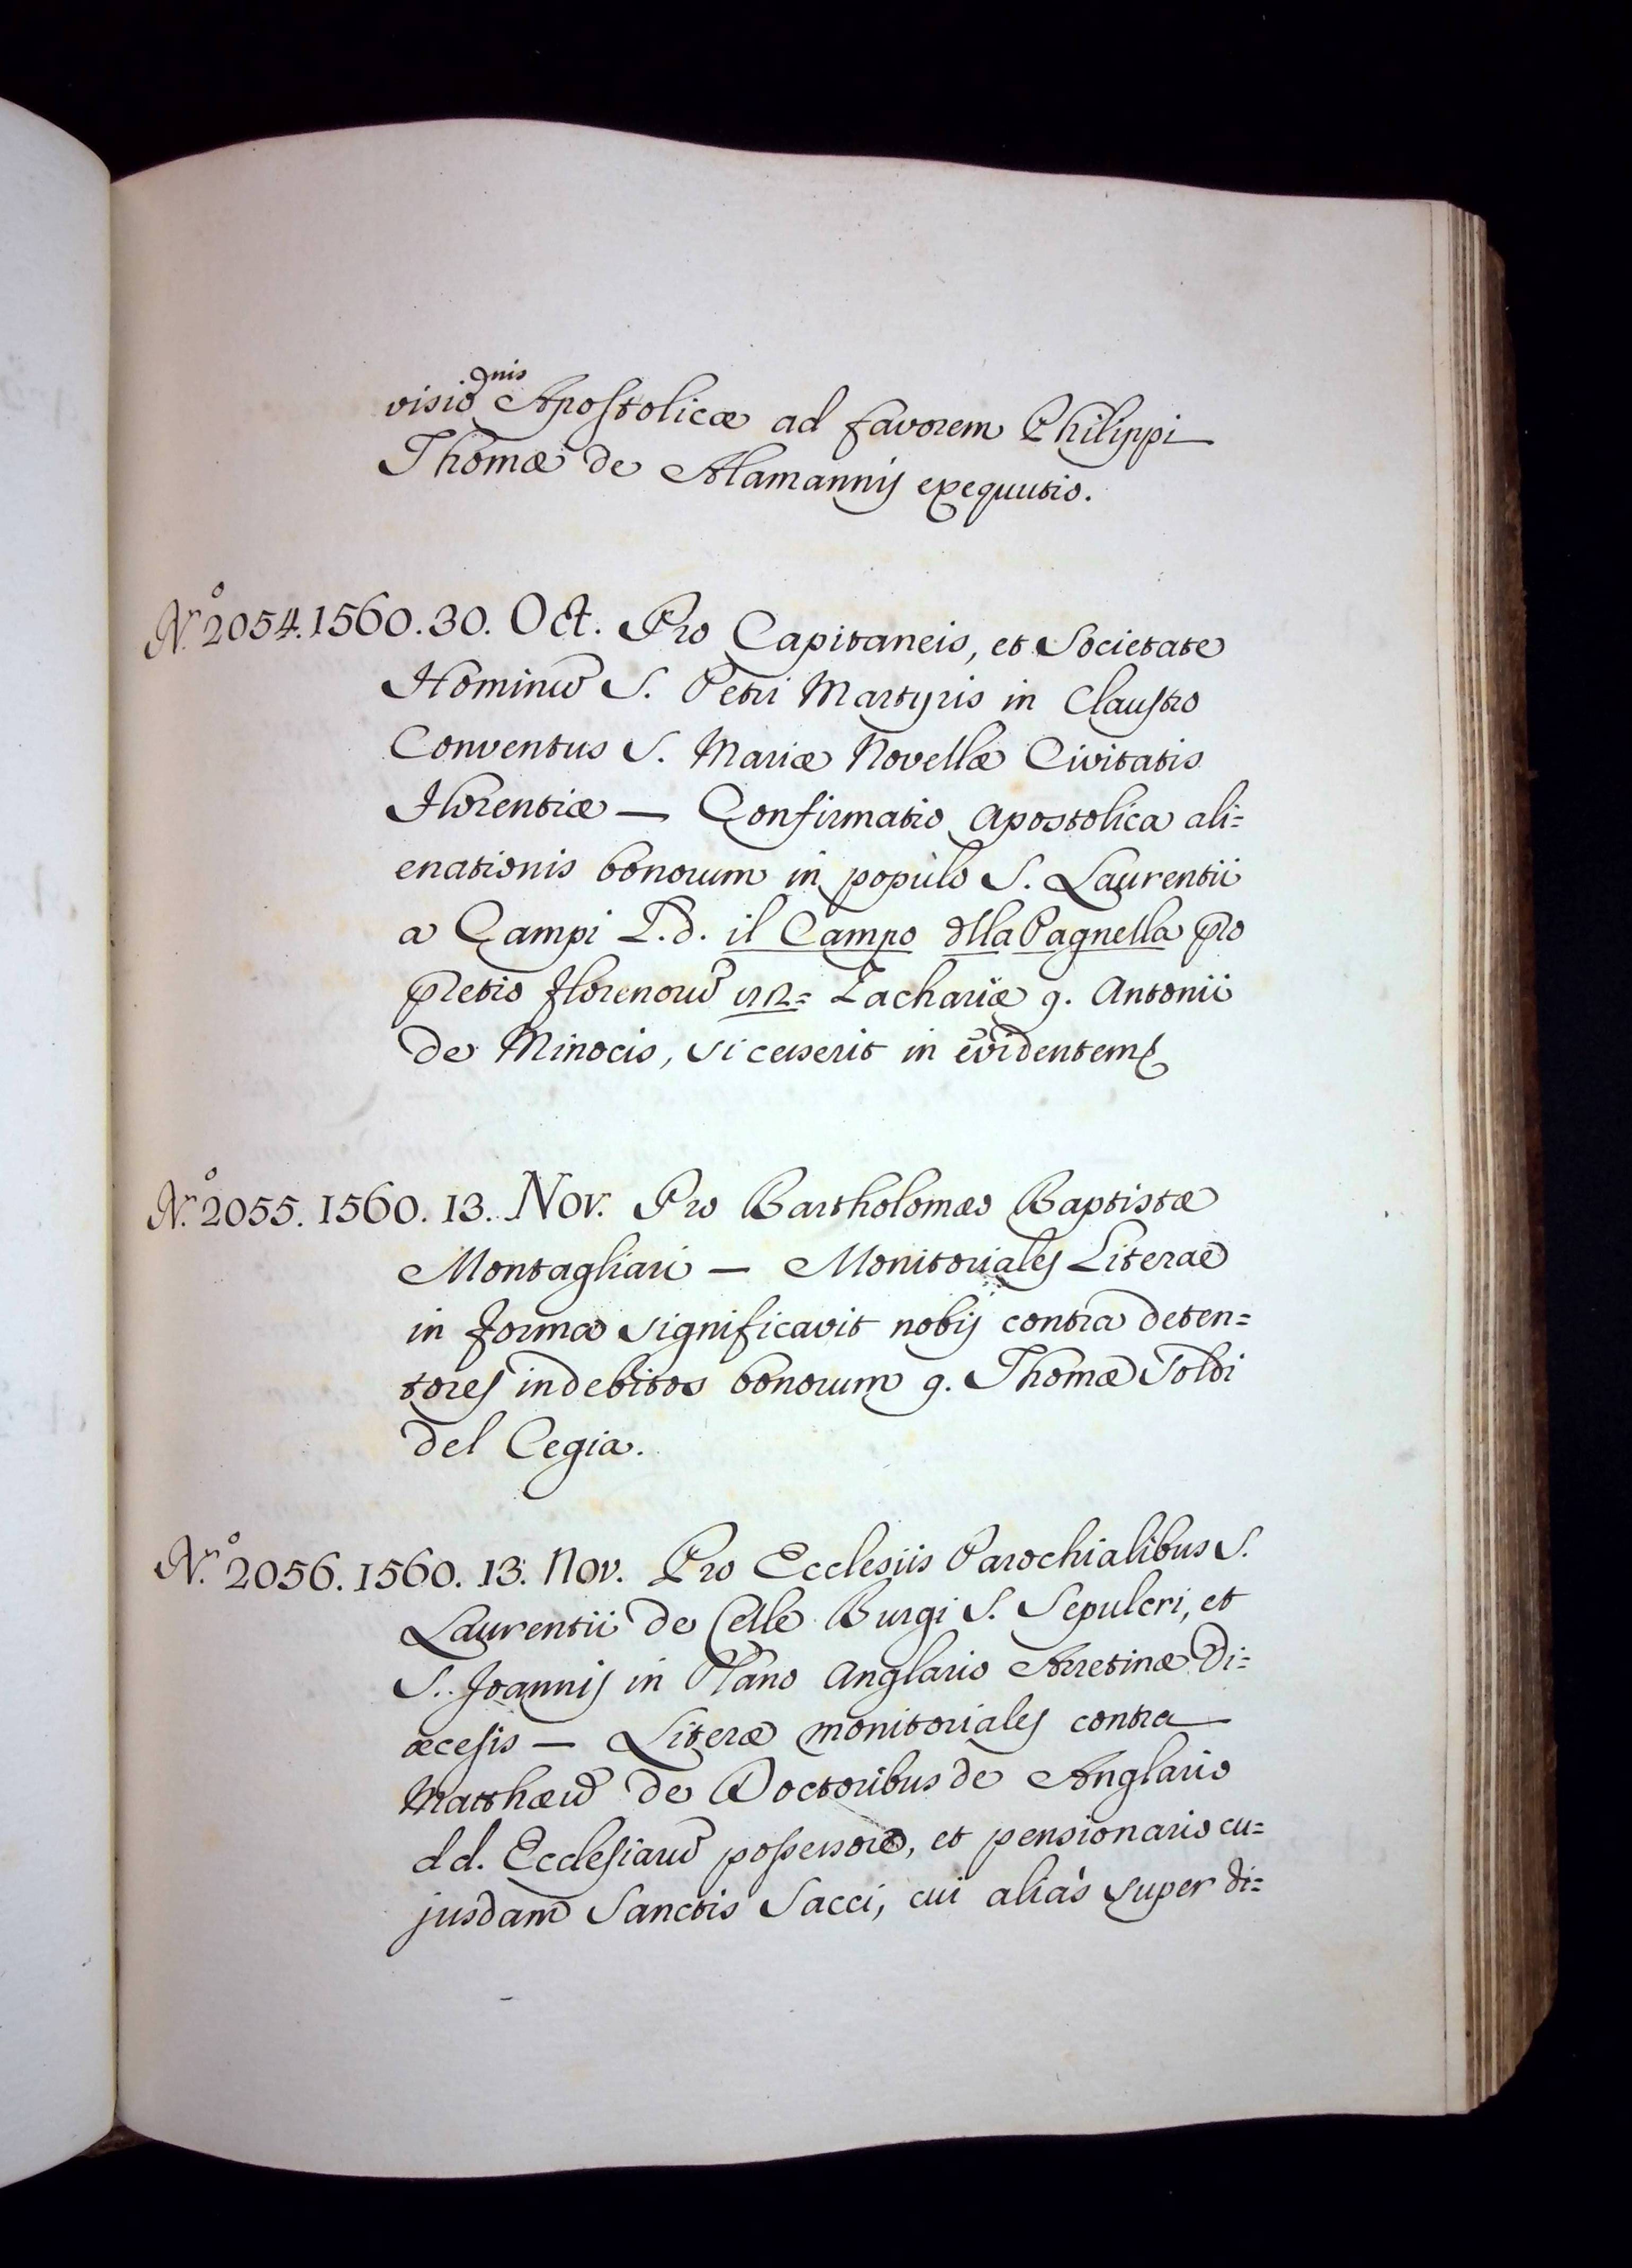 visionis Apostolicæ ad favorem Philippi
Thomæ de Alamannis exequutio.
N.º 2054. 1560. 30. Oct. Pro Capitaneis, et Societate
Hominũ S. Petri Martyris in Claustro
Conventus S. Mariæ Novellæ Civitatis
Florentiæ — Confirmatio Apostolica ali=
enationis bonorum in populo S. Laurentii
a Campi L.d. il Campo dlla Pagnella pro
pretio florenorũ Zachariæ q. Antonii
de Minocis, si cesserit in evidentem
N.º 2055. 1560. 13. Nov. Pro Bartholomæo Baptistæ
Montagliari — Monitoriales Literae
in forma significavit nobis contra deten=
tores indebitos bonorum q. Thomæ Toldi
del Cegia.
N.º 2056. 1560. 13. Nov. Pro Ecclesiis Parochialibus S.
Laurentii de Celle Burgi S. Sepulcri, et
S. Joannis in Plano Anglario Arretinæ Di=
œcesis — Literæ monitoriales contra
Matthæũ de Doctoribus de Anglario
dd. Ecclesiarũ possessore, et pensionario cu=
jusdam Sanctis Sacci, cui aliàs super di=